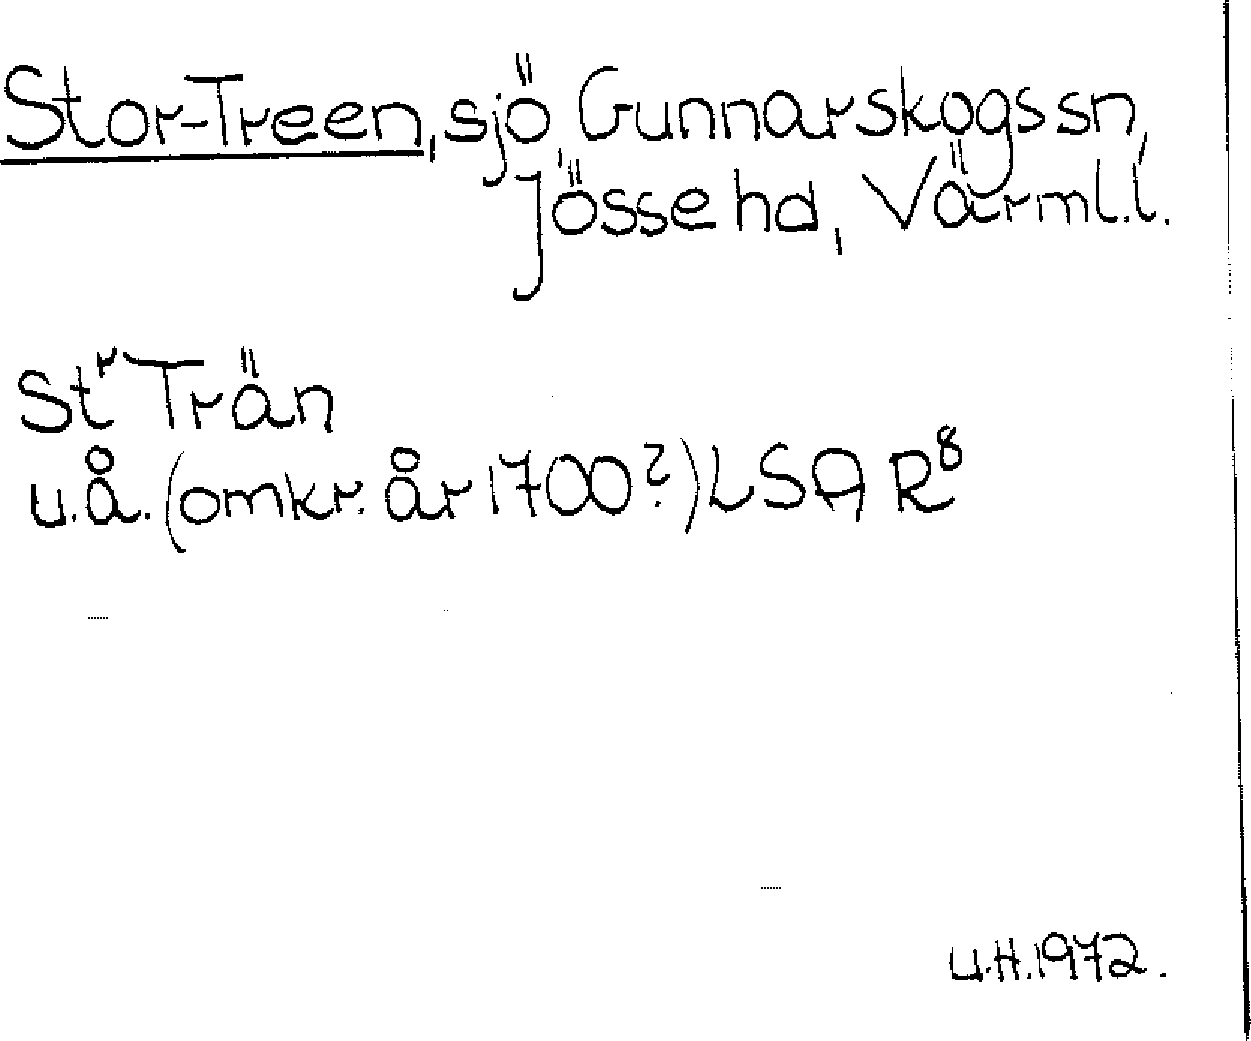 Stor-Treen, sjö, Gunnarskogs sn,
Jösse hd, Värml. l.
Stʳ Trän
u.å. (omkr. år 1700?) LSA R⁸
U.H. 1972.